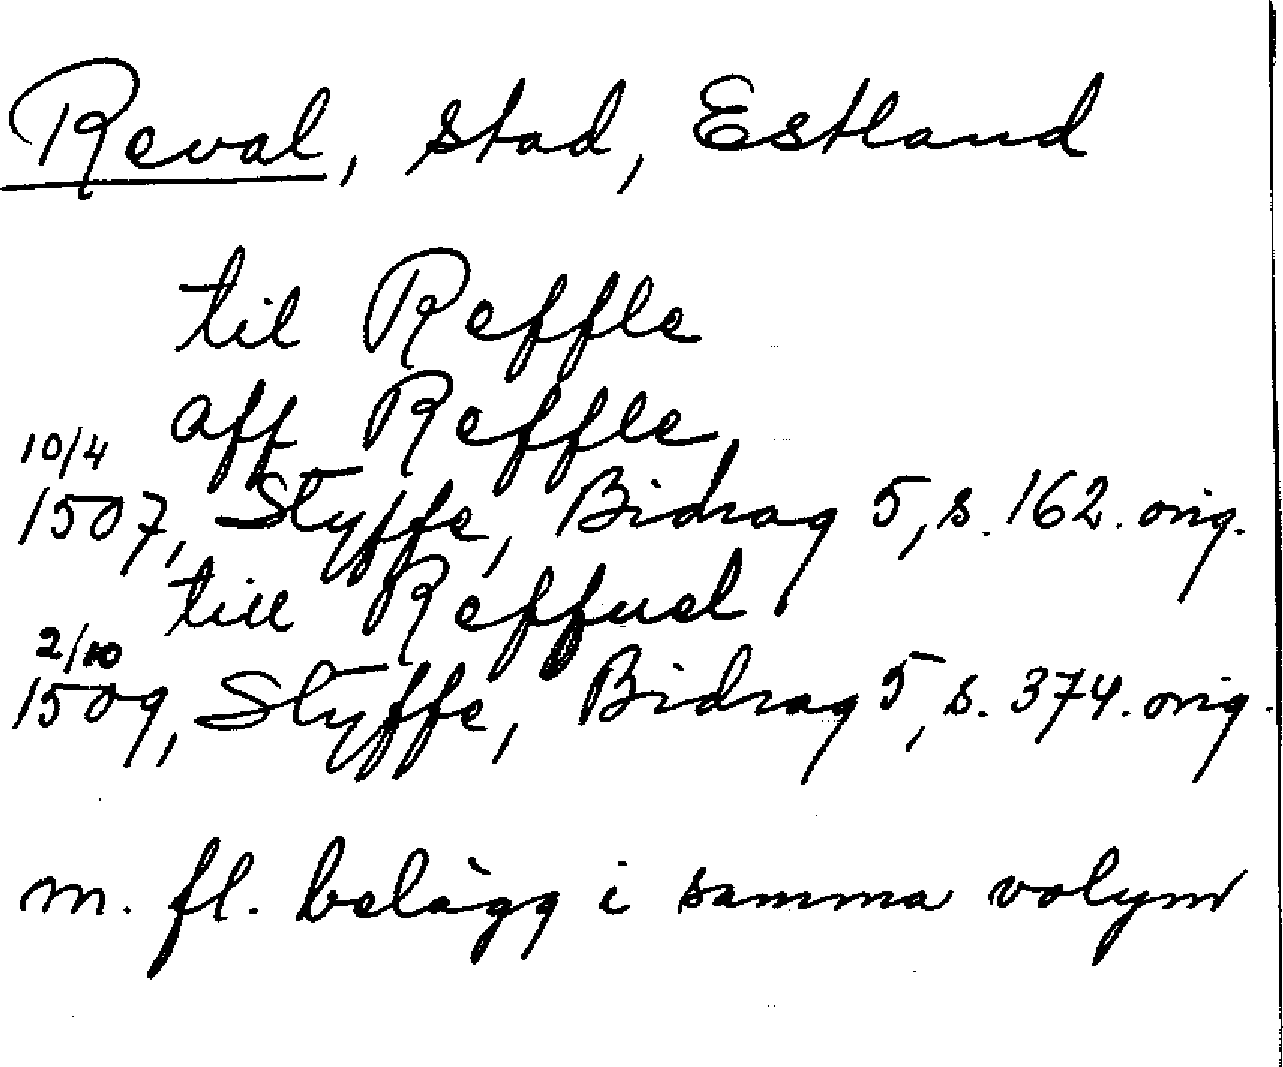 Reval, stad, Estland
til Reffle
aff Reffle,
10/4
1507, Styffe, Bidrag 5, s. 162. orig.
till Reffuel
2/10
1509, Styffe, Bidrag 5, s. 374. orig.
m. fl. belägg i samma volym